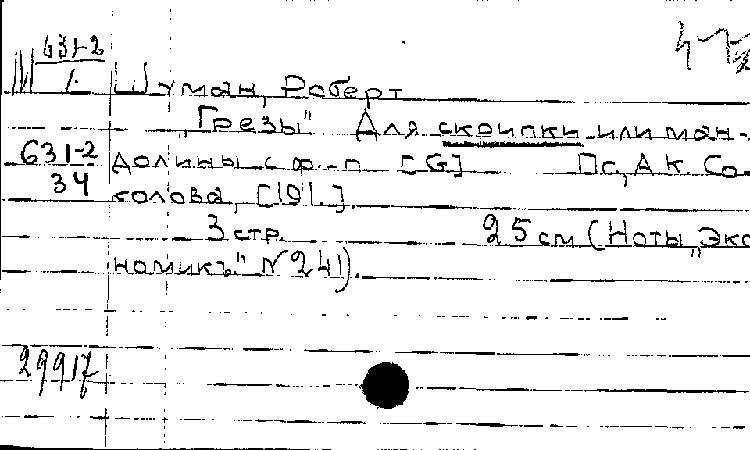 М 631-2
1.
Шуман, Роберт
„Грезы" Для скрипки или ман-
631-2 долины с ф-п. [G] Пс, А.К. Со-
34 колова, [191.].
3 стр. 25 см (Ноты „Эко
номикъ" N 241).
29917